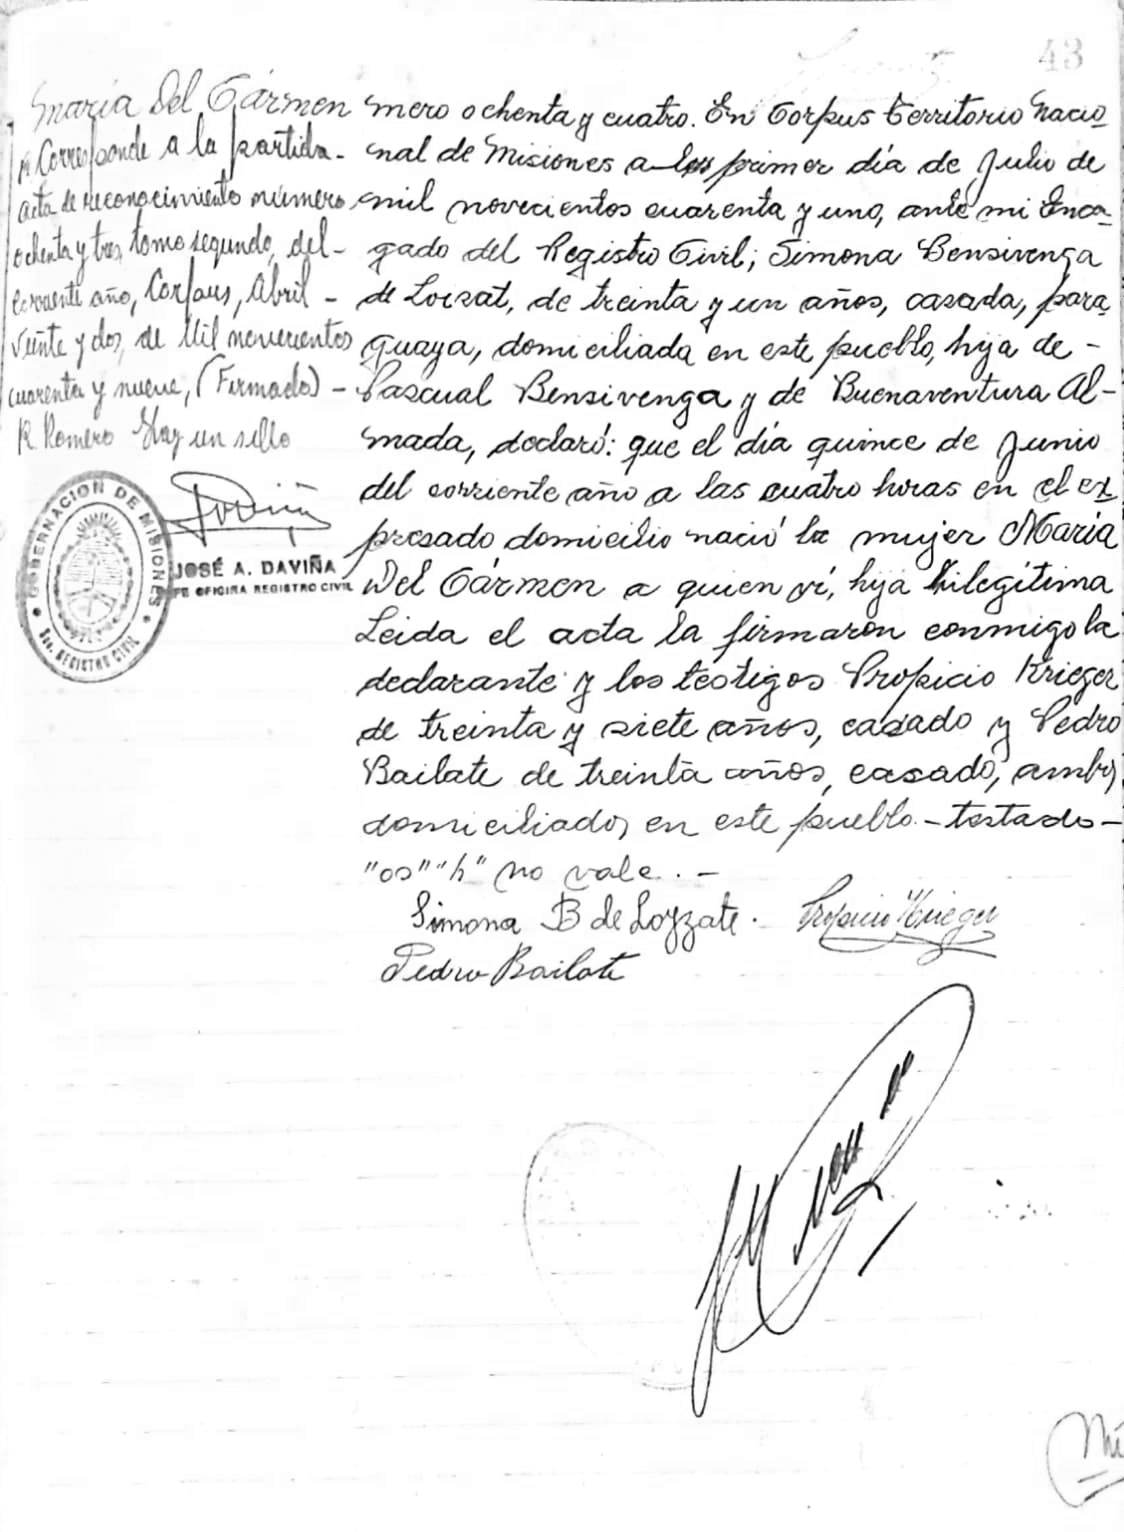 43
María Del Cármen
Corresponde a la partida-
acta de reconocimiento número
ochenta y tres, tomo segundo, del-
corriente año, Corpus, Abril -
veinte y dos, de Mil novecientos
cuarenta y nueve, (Firmado) -
R Romero Hay un sello
GOBERNACION DE MISIONES
REGISTRO CIVIL
JOSÉ A. DAVIÑA
FE OFICINA REGISTRO CIVIL
mero ochenta y cuatro. En Corpus Territorio Nacio-
nal de Misiones a los primer día de Julio de
mil novecientos cuarenta y uno, ante mi Enca-
gado del Registro Civil; Simona Bensivenga
de Loisat, de treinta y un años, casada, para-
guaya, domiciliada en este pueblo, hija de -
Pascual Bensivenga y de Buenaventura Al-
mada, declaró: que el día quince de Junio
del corriente año a las cuatro horas en el ex-
presado domicilio nació la mujer María
Del Cármen a quien ví, hija hilegítima
Leida el acta la firmaron conmigo la
declarante y los testigos Propicio Krieger
de treinta y siete años, casado y Pedro
Bailate de treinta años, casado, ambos
domiciliados en este pueblo.-testado-
"os" "h" no vale.-
Simona B de Loyzate. Propicio Krieger
Pedro Bailate